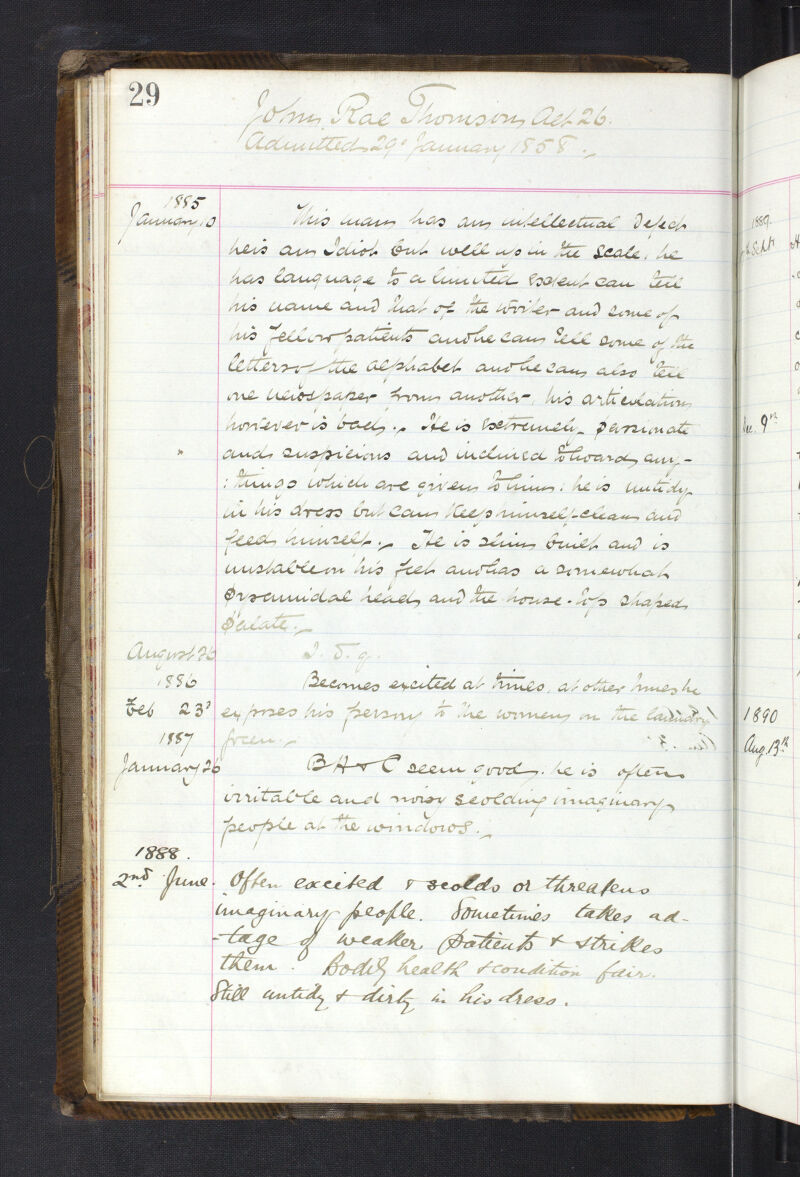 29
John Rae Thomson Aet 26.
Admitted 29th January 1858.
1885
January 10 This man has an intellectual defect
he is an Idiot but well up in the scale, he
has language to a limited extent can tell
his name and that of the writer and some of
his fellow patients and he can tell some of the
letters of the alphabet and he can also tell
one newspaper from another, his articulation
however is bad. He is extremely passionate
and suspicious and inclined to hoard any-
:things which are given to him: he is untidy
in his dress but can keep himself clean and
feed himself. He is slim built and is
unstable on his feet and has a somewhat
pyramidal head, and the house-top shaped
palate.
August 26 I. S. q.
1886 Becomes excited at times, at other times he
Feb 23d exposes his person to the women on the laundry
1887 green.
January 26 B H & C seem good. he is often
irritable and noisy scolding imaginary
people at the windows.
1888.
2nd June. Often excited & scolds or threatens
imaginary people. Sometimes takes ad-
-tage of weaker patients & strikes
them. Bodily health & condition fair.
Still untidy & dirty in his dress.
1889.
Sept
Dec. 9th
1890
Aug. 13th